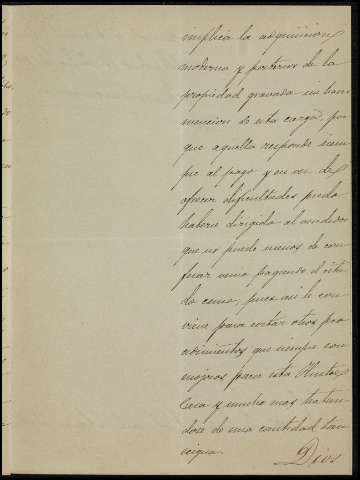 implica la adquisicion
moderna y posterior de la
propiedad gravada sin hacer
mencion de esta carga, por
que aquella responde siem
pre al pago y en vez de
ofrecer dificultades pudo
haberse dirigido al vendedor
que no puede menos de con
pagando el cita
do censo, pues asi le con
viene para evitar otros pro
cedimientos que siempre son
para esta
y mucho mas tratan
dose de una cantidad tan
Dios